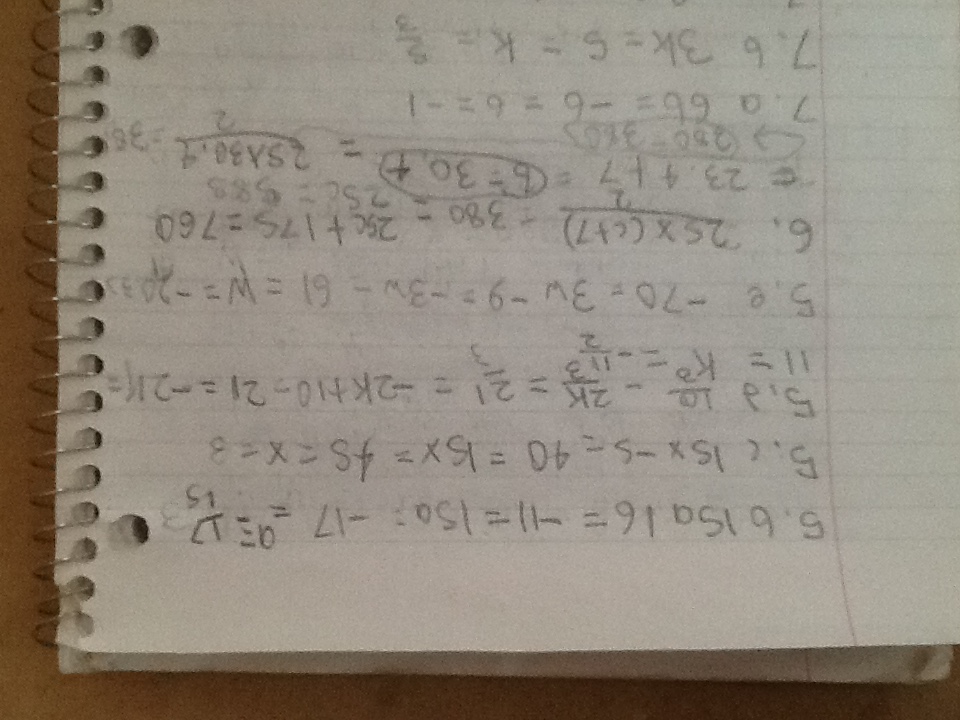 5. b 15a + 6 = -11 = 15a = -17 = a = 17/15
5. c 15x - 5 = 40 = 15x = 45 = x = 3
5. d 10/3 - 2k/3 = 21/3 = -2k + 10 = 21 = -2k =
11 = k = -11/2
5. e -70 = 3w - 9 = -3w = 61 = w = -20.33
6. 25 x (c+7)/2 = 380 = 25c + 175 = 760
25c = 585
= 23.4 + 7 = b = 30.4 = 25 x 30.4/2 = 38
7. a 6b = -6 = b = -1
7. b 3k = 5 = k = 5/3